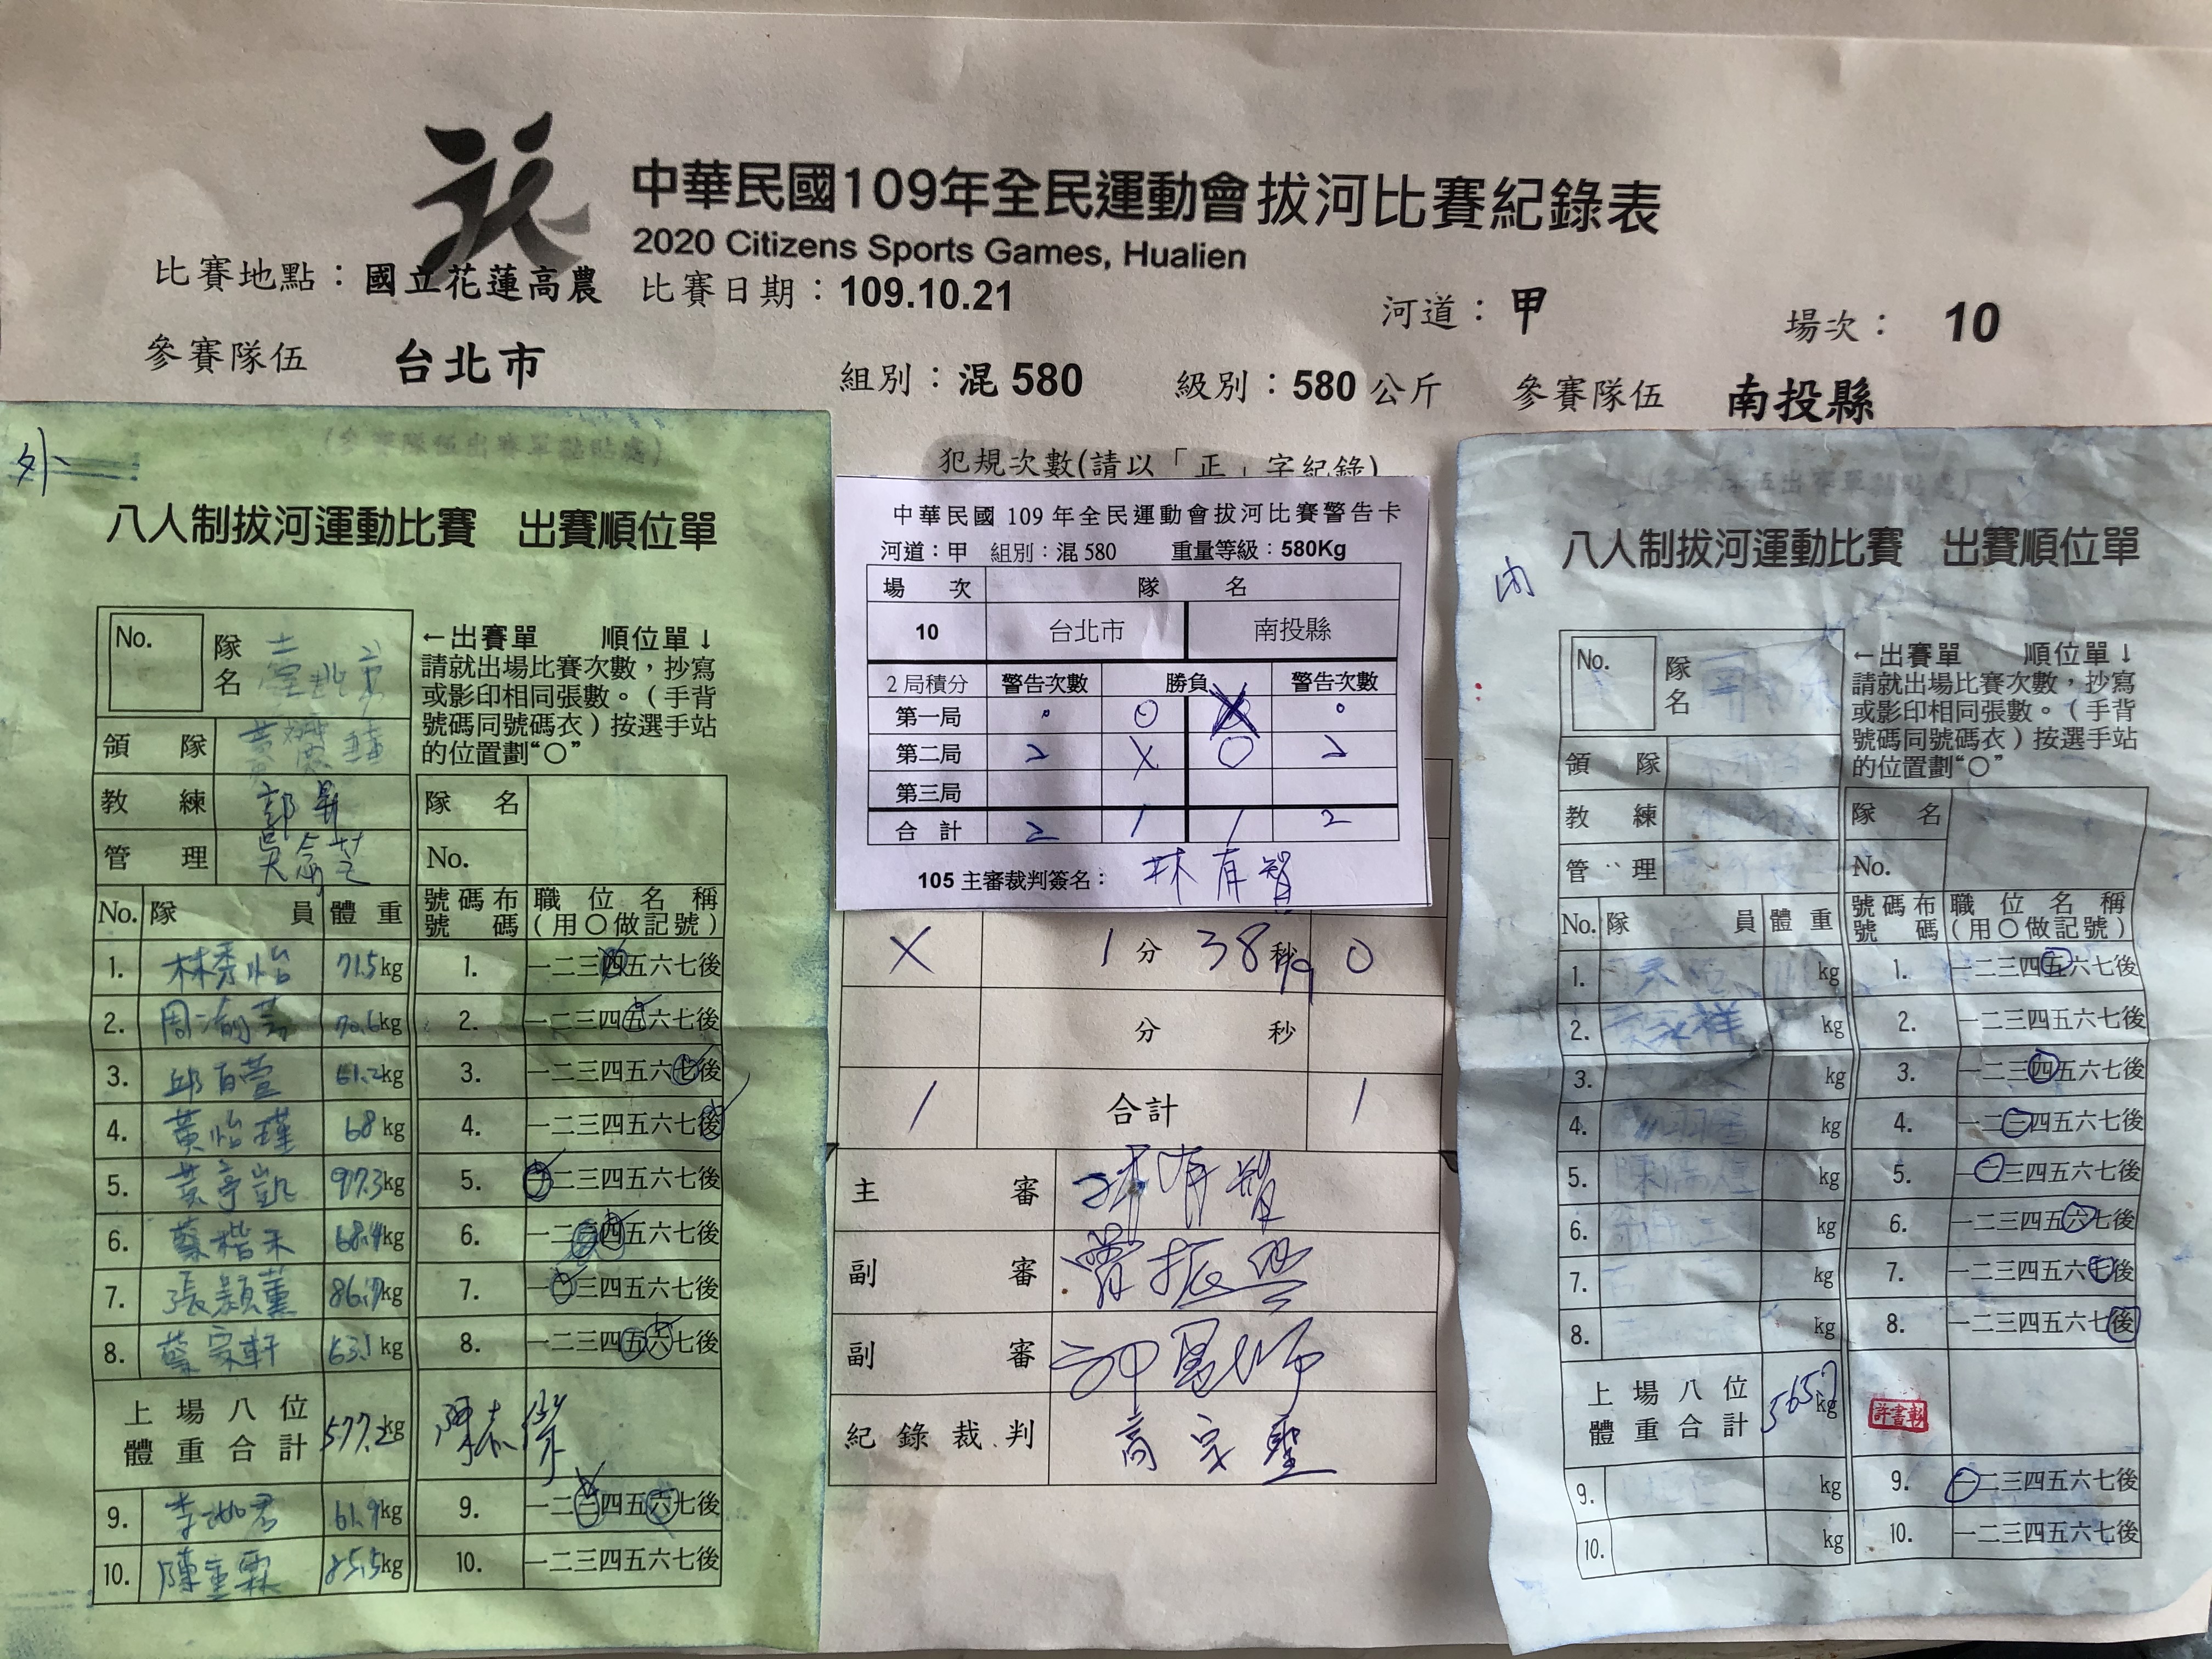 中華民國109年全民運動會拔河比賽紀錄表
2020 Citizens Sports Games, Hualien
比賽地點：國立花蓮高農 比賽日期：109.10.21 河道：甲 場次： 10
參賽隊伍 台北市 組別：混 580 級別：580 公斤 參賽隊伍 南投縣
犯規次數(請以「正」字紀錄)
外
(參賽隊伍出賽單黏貼處)
八人制拔河運動比賽 出賽順位單
No. 隊名
←出賽單 順位單↓
請就出場比賽次數，抄寫
或影印相同張數。（手背
號碼同號碼衣）按選手站
的位置劃“○”
領隊
教練 郭昇
隊名
管理
No.
No. 隊員 體重 號碼布號碼 職位名稱(用○做記號)
1. 林秀怡 71.5kg 1. 一二三四五六七後
2. 70.6kg 2. 一二三四五六七後
3. 邱百萱 61.2kg 3. 一二三四五六七後
4. 黃怡瑾 68kg 4. 一二三四五六七後
5. 黃亭凱 97.3kg 5. 一二三四五六七後
6. 68.4kg 6. 一二三四五六七後
7. 張顥薰 86.7kg 7. 一二三四五六七後
8. 蔡宗軒 63.1kg 8. 一二三四五六七後
上場八位體重合計 577.2kg
9. 61.9kg 9. 一二三四五六七後
10. 85.5kg 10. 一二三四五六七後
中華民國 109 年全民運動會拔河比賽警告卡
河道：甲 組別：混 580 重量等級：580Kg
場次 隊名
10 台北市 南投縣
2 局積分 警告次數 勝負 警告次數
第一局 0 O X 0
第二局 2 X O 2
第三局
合計 2 1 1 2
105 主審裁判簽名： 林有智
X 1 分 38 秒 O
分 秒
1 合計 1
主審 林有智
副審 曾振興
副審
紀錄裁判 高宗聖
內
(參賽隊伍出賽單黏貼處)
八人制拔河運動比賽 出賽順位單
No. 隊名
←出賽單 順位單↓
請就出場比賽次數，抄寫
或影印相同張數。（手背
號碼同號碼衣）按選手站
的位置劃“○”
領隊
教練
隊名
管理
No.
No. 隊員 體重 號碼布號碼 職位名稱(用○做記號)
1. kg 1. 一二三四五六七後
2. kg 2. 一二三四五六七後
3. kg 3. 一二三四五六七後
4. kg 4. 一二三四五六七後
5. kg 5. 一二三四五六七後
6. kg 6. 一二三四五六七後
7. kg 7. 一二三四五六七後
8. kg 8. 一二三四五六七後
上場八位體重合計 565.7kg
9. kg 9. 一二三四五六七後
10. kg 10. 一二三四五六七後